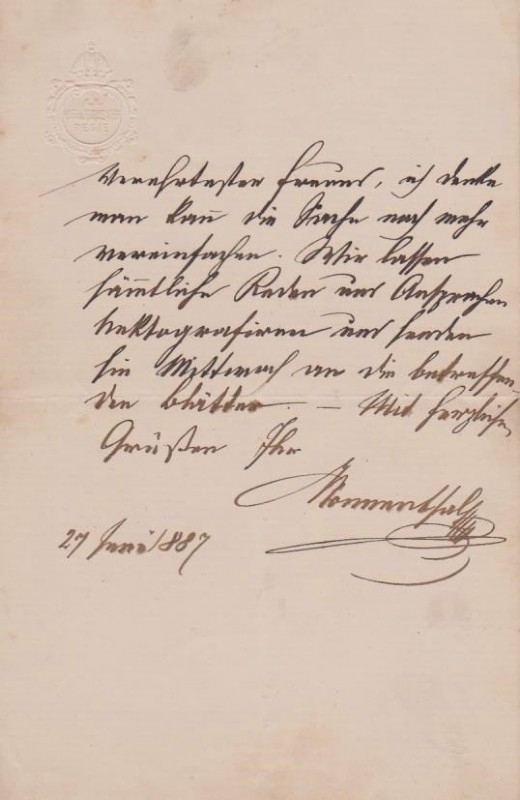 Verehrtester Freund, ich denke
man kann die Sache noch mehr
vereinfachen. Wir lassen
sämmtliche Reden und Ansprachen
hektografiren und senden
sie Mittwoch an die betreffen-
den Blätter. – Mit herzlichen
Grüßen Ihr
Sonnenthal
27 Juni 1887